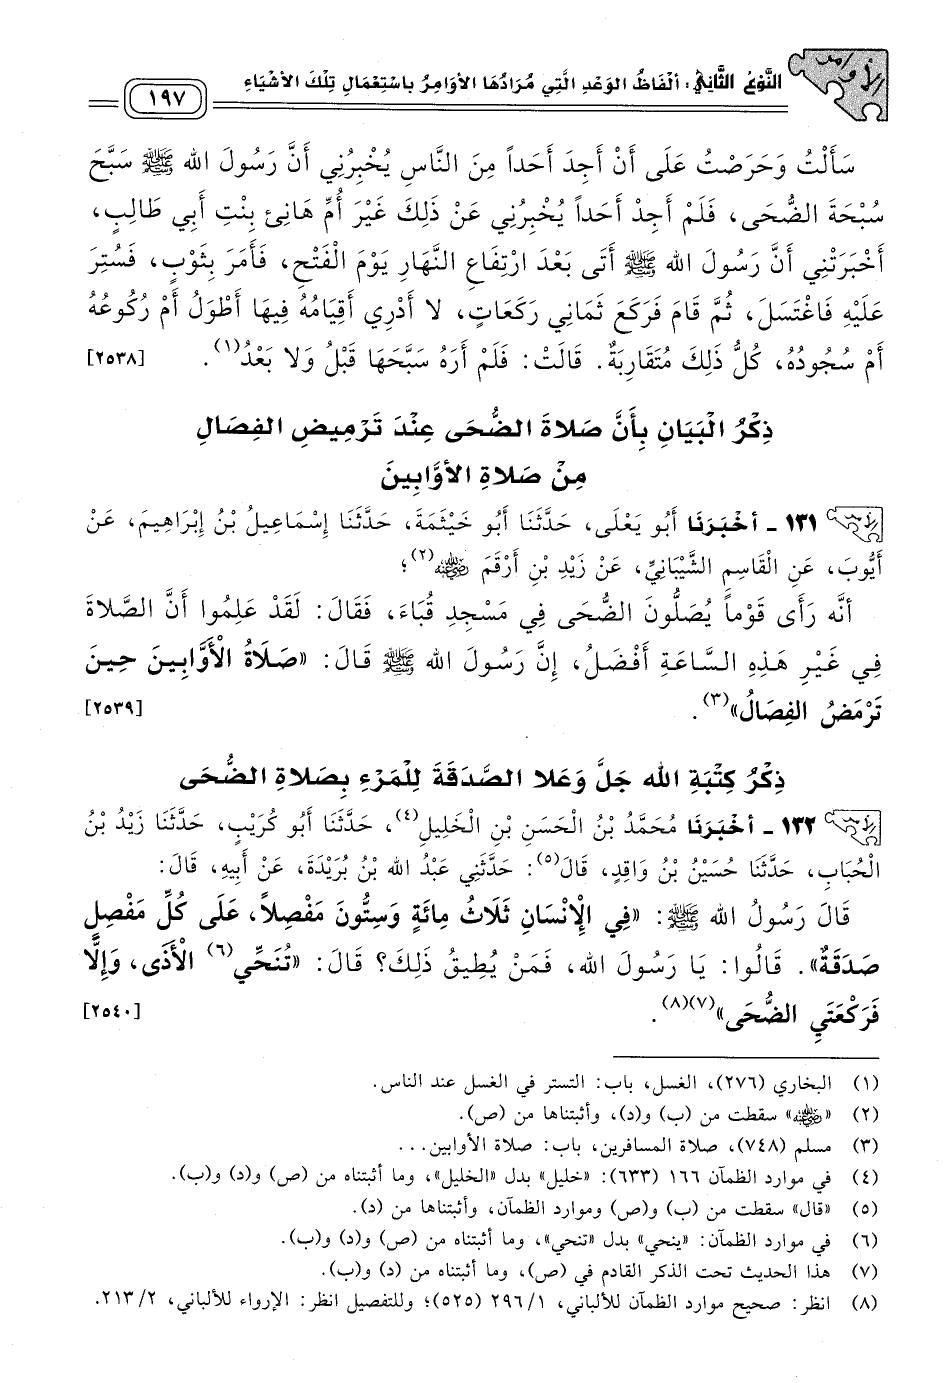 الأوامر
النَّوْعُ الثَّانِي: أَلْفَاظُ الوَعْدِ الَّتِي مُرَادُهَا الأَوَامِرُ بِاسْتِعْمَالِ تِلْكَ الأَشْيَاءِ
١٩٧
سَأَلْتُ وَحَرَصْتُ عَلَى أَنْ أَجِدَ أَحَداً مِنَ النَّاسِ يُخْبِرُنِي أَنَّ رَسُولَ الله ﷺ سَبَّحَ
سُبْحَةَ الضُّحَى، فَلَمْ أَجِدْ أَحَداً يُخْبِرُنِي عَنْ ذَلِكَ غَيْرَ أُمِّ هَانِئٍ بِنْتِ أَبِي طَالِبٍ،
أَخْبَرَتْنِي أَنَّ رَسُولَ الله ﷺ أَتَى بَعْدَ ارْتِفَاعِ النَّهَارِ يَوْمَ الْفَتْحِ، فَأَمَرَ بِثَوْبٍ، فَسُتِرَ
عَلَيْهِ فَاغْتَسَلَ، ثُمَّ قَامَ فَرَكَعَ ثَمَانِي رَكَعَاتٍ، لا أَدْرِي أَقِيَامُهُ فِيهَا أَطْوَلُ أَمْ رُكُوعُهُ
أَمْ سُجُودُهُ، كُلُّ ذَلِكَ مُتَقَارِبَةٌ. قَالَتْ: فَلَمْ أَرَهُ سَبَّحَهَا قَبْلُ وَلا بَعْدُ(١). [٢٥٣٨]
ذِكْرُ الْبَيَانِ بِأَنَّ صَلاةَ الضُّحَى عِنْدَ تَرْمِيضِ الفِصَالِ
مِنْ صَلاةِ الأَوَّابِينَ
١٣١ - أَخْبَرَنَا أَبُو يَعْلَى، حَدَّثَنَا أَبُو خَيْثَمَةَ، حَدَّثَنَا إِسْمَاعِيلُ بْنُ إِبْرَاهِيمَ، عَنْ
أَيُّوبَ، عَنِ الْقَاسِمِ الشَّيْبَانِيِّ، عَنْ زَيْدِ بْنِ أَرْقَمَ رضي الله عنه(٢)؛
أنَّه رَأَى قَوْماً يُصَلُّونَ الضُّحَى فِي مَسْجِدِ قُبَاءَ، فَقَالَ: لَقَدْ عَلِمُوا أَنَّ الصَّلاةَ
فِي غَيْرِ هَذِهِ السَّاعَةِ أَفْضَلُ، إِنَّ رَسُولَ الله ﷺ قَالَ: «صَلاةُ الْأَوَّابِينَ حِينَ
تَرْمَضُ الفِصَالُ»(٣). [٢٥٣٩]
ذِكْرُ كِتْبَةِ الله جَلَّ وَعَلا الصَّدَقَةَ لِلْمَرْءِ بِصَلاةِ الضُّحَى
١٣٢ - أَخْبَرَنَا مُحَمَّدُ بْنُ الْحَسَنِ بْنِ الْخَلِيلِ(٤)، حَدَّثَنَا أَبُو كُرَيْبٍ، حَدَّثَنَا زَيْدُ بْنُ
الْحُبَابِ، حَدَّثَنَا حُسَيْنُ بْنُ وَاقِدٍ، قَالَ(٥): حَدَّثَنِي عَبْدُ الله بْنُ بُرَيْدَةَ، عَنْ أَبِيهِ، قَالَ:
قَالَ رَسُولُ الله ﷺ: «فِي الْإِنْسَانِ ثَلَاثُ مِائَةٍ وَسِتُّونَ مَفْصِلاً، عَلَى كُلِّ مَفْصِلٍ
صَدَقَةٌ». قَالُوا: يَا رَسُولَ الله، فَمَنْ يُطِيقُ ذَلِكَ؟ قَالَ: «تُنَحِّي(٦) الْأَذَى، وَإِلَّا
فَرَكْعَتَيِ الضُّحَى»(٧)(٨). [٢٥٤٠]
(١) البخاري (٢٧٦)، الغسل، باب: التستر في الغسل عند الناس.
(٢) «رضي الله عنه» سقطت من (ب) و(د)، وأثبتناها من (ص).
(٣) مسلم (٧٤٨)، صلاة المسافرين، باب: صلاة الأوابين...
(٤) في موارد الظمآن ١٦٦ (٦٣٣): «خليل» بدل «الخليل»، وما أثبتناه من (ص) و(د) و(ب).
(٥) «قال» سقطت من (ب) و(ص) وموارد الظمآن، وأثبتناها من (د).
(٦) في موارد الظمآن: «ينحي» بدل «تنحي»، وما أثبتناه من (ص) و(د) و(ب).
(٧) هذا الحديث تحت الذكر القادم في (ص)، وما أثبتناه من (د) و(ب).
(٨) انظر: صحيح موارد الظمآن للألباني، ٢٩٦/١ (٥٢٥)؛ وللتفصيل انظر: الإرواء للألباني، ٢١٣/٢.